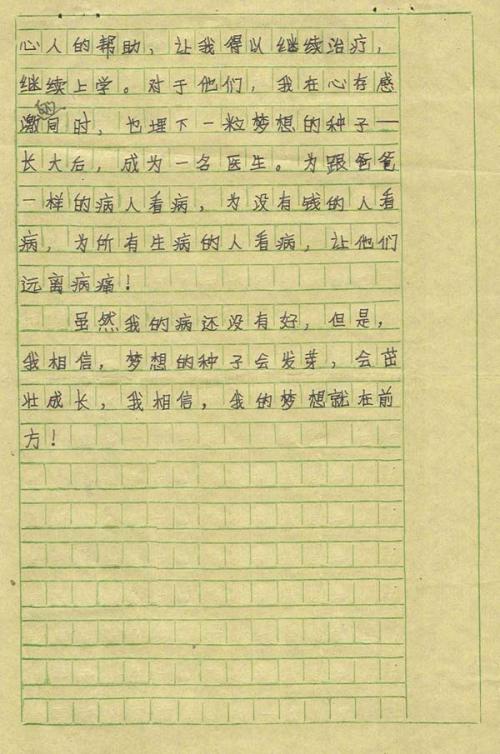 心人的帮助，让我得以继续治疗，
继续上学。对于他们，我在心存感
激的同时，也埋下一粒梦想的种子—
长大后，成为一名医生。为跟爸爸
一样的病人看病，为没有钱的人看
病，为所有生病的人看病，让他们
远离病痛！
虽然我的病还没有好，但是，
我相信，梦想的种子会发芽，会茁
壮成长，我相信，我的梦想就在前
方！